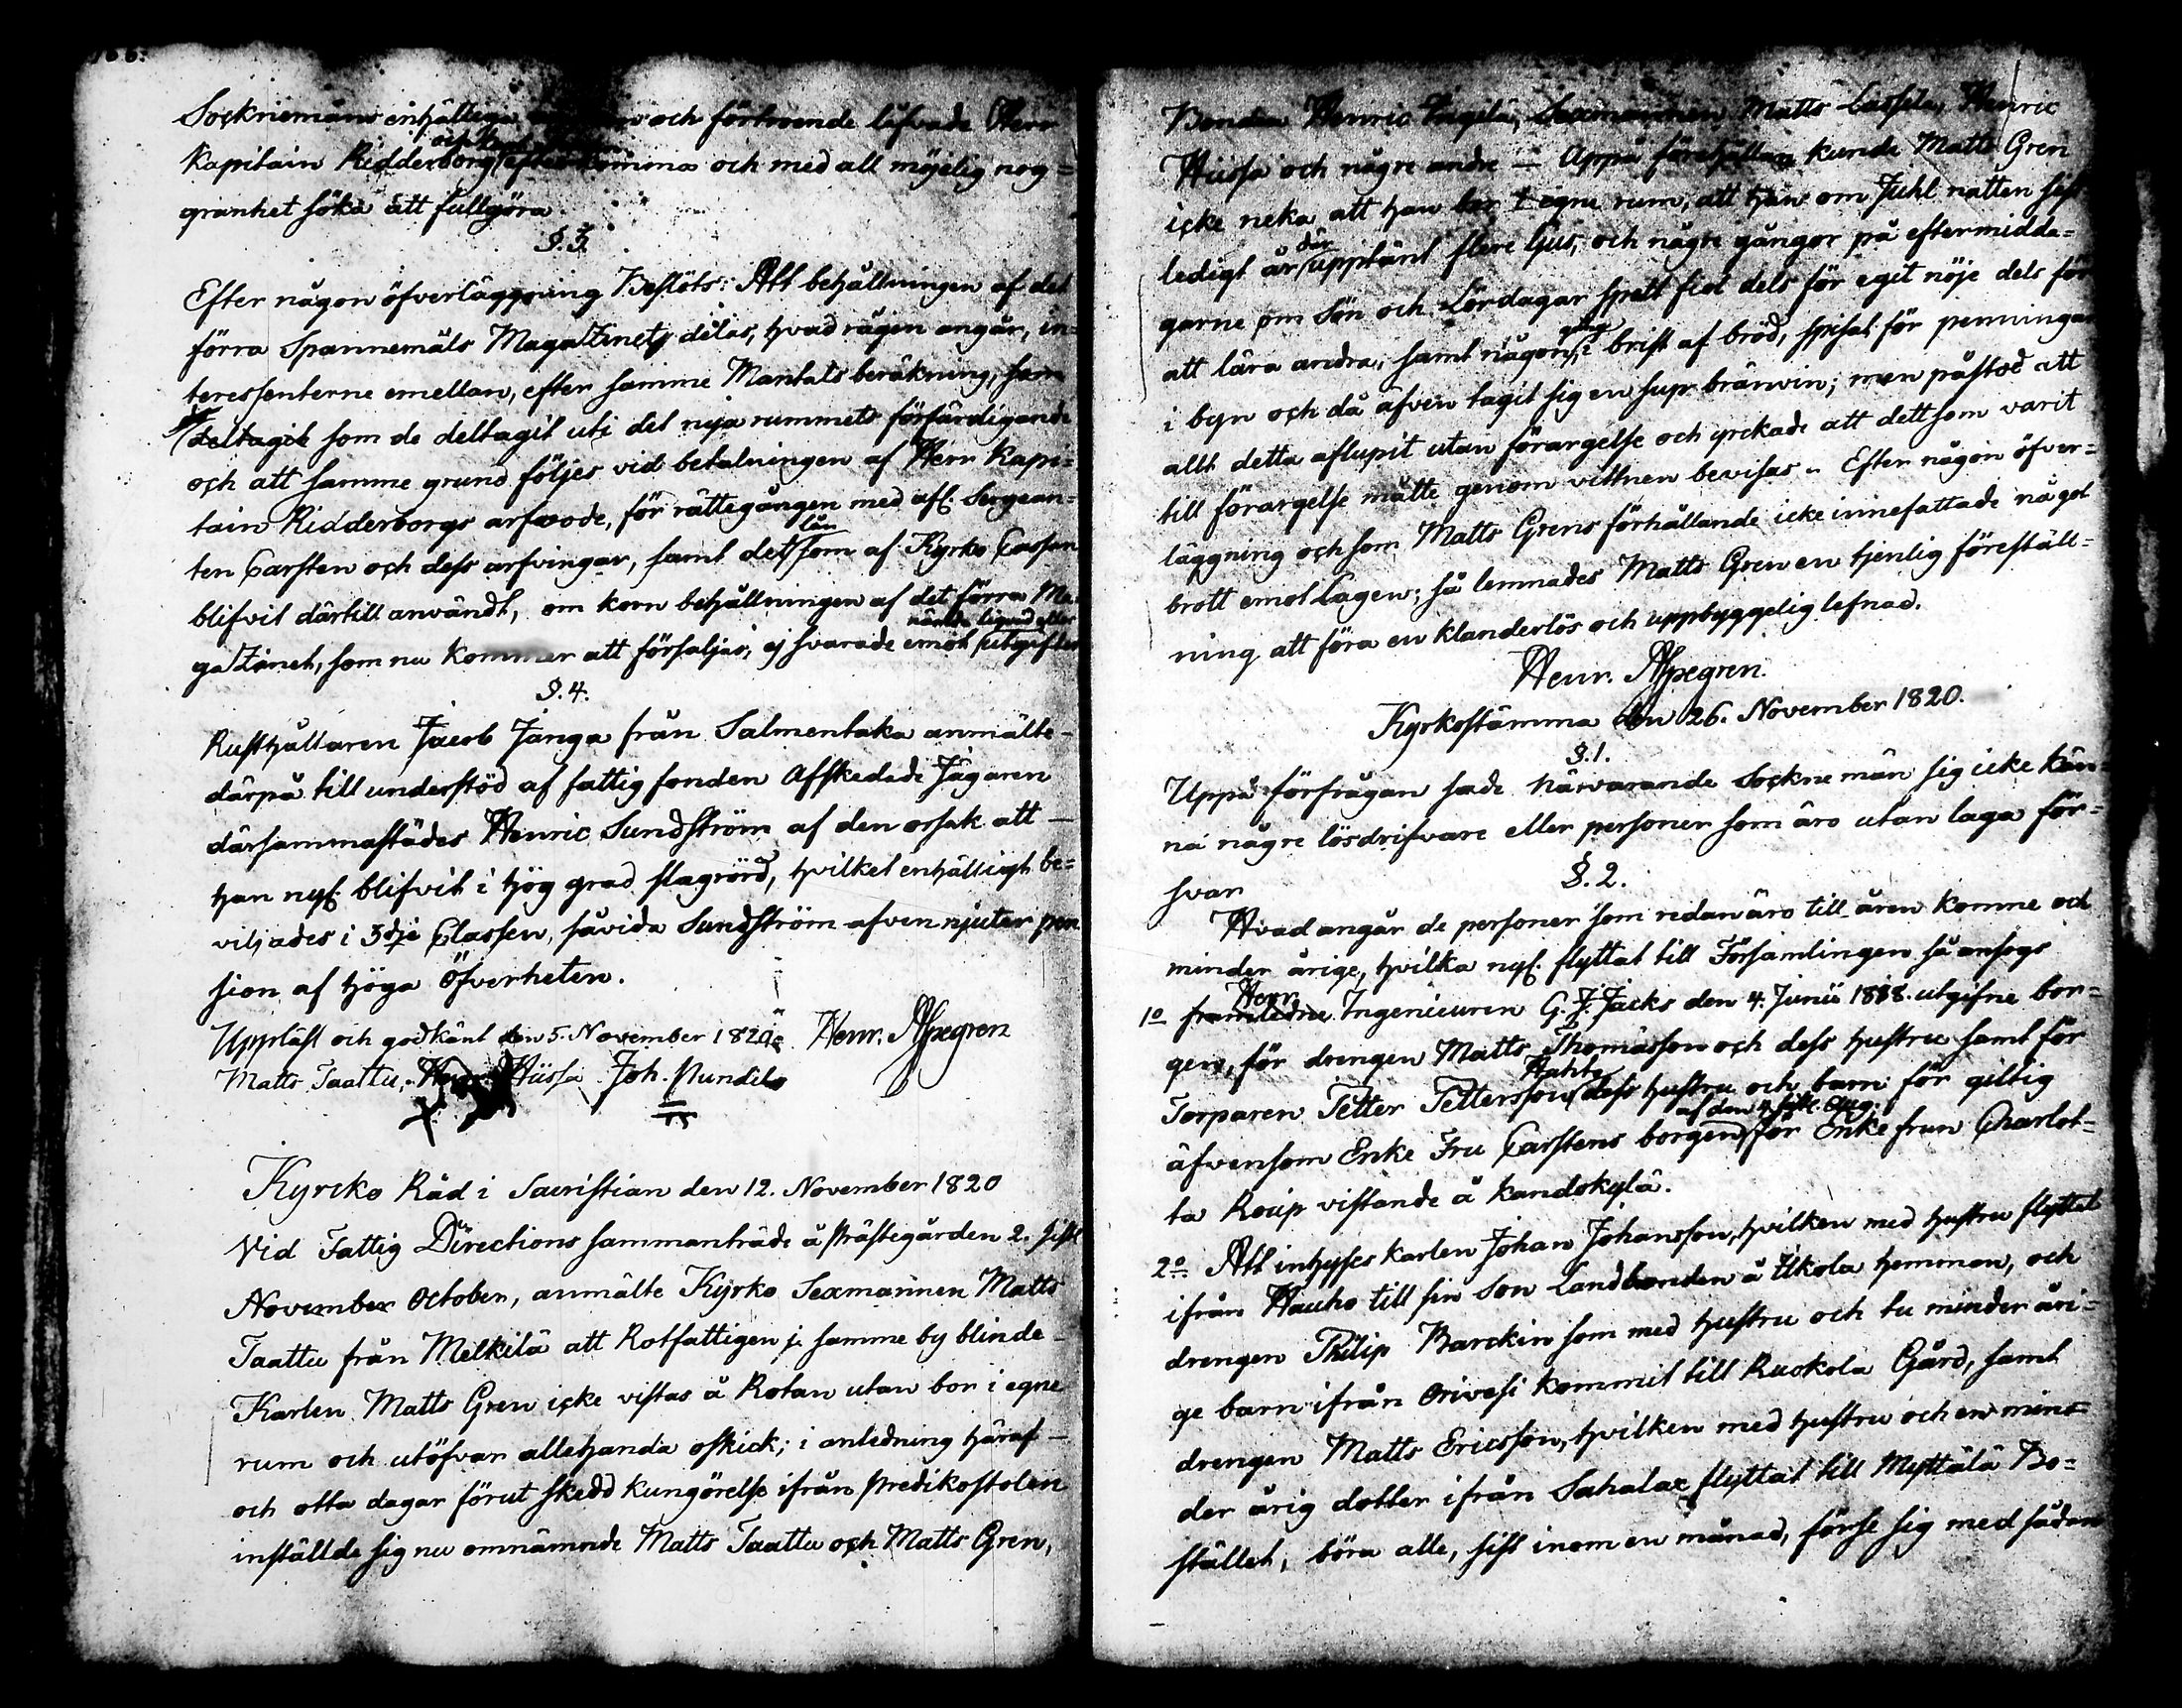 Socknemäns enhälliga och förtroende lofvade Herr
Kapitain Ridderborg efterkomma och med all möjelig nog=
granhet söka att fullgöra
§. 3.
Efter någon öfverläggning Beslöts: Att behållningen af det
förra Spannemåls Magazinet delas, hvad rågen angår, in=
teressenterne emellan, efter samme Mantals beräkning, som
deltagit som de deltagit uti det nya rummets förfärdigande
och att samme grund följes vid betalningen af Herr Kapi=
tain Ridderborgs arfwode, för rättegången med afl. Sergean=
ten Carsten och dess arfvingar, samt det lån som af Kyrko Cassan
blifvit därtill användt, om korn behållningen af det förra Ma=
gazinet, som nu kommer att försäljas, ej svarade emot utgiften
§. 4.
Rusthållaren Jacob Janga från Salmentaka anmälte
därpå till understöd af fattig fonden Afskedade Jägaren
därsammastädes Henric Sundström af den orsak att
han nyl. blifvit i hög grad slagrörd, hvilket enhälligt be=
viljades i 3dje Classen, såvida Sundström äfven njuter pen
sion af höga Öfverheten.
Uppläst och godkänt den 5. November 1820. Henr. Aspegren
Matts Taattu, Hüssa Joh. Nundila
Kyrcko Råd i Sacristian den 12. November 1820
Vid Fattig Directions sammanträde å Prästegården 2. sistl
November October, anmälte Kyrko Sexmannen Matts
Taattu från Melkilä att Rotfattigen i samme by blinde
Karlen Matts Gren icke vistas å Rotan utan bor i egne
rum och utöfvar allehanda oskick; i anledning häraf
och otta dagar förut skedd kungörelse ifrån predikostolen
inställde sig nu omnämnde Matts Taattu och Matts Gren,
Bonden Henric Sexmannen Matts Lassila, Henric
Hüssa och någre andre — Uppå föreställan kunde Matts Gren
icke neka att han bor i egne rum, att han om Juhl natten sist
ledigt år där upptänt flere ljus, och någre gångor på eftermidda=
garne om Sön och Lördagar spelt fiol dels för eget nöje dels för
att lära andra, samt någon gång i brist af bröd, spisat för penningar
i byn och då äfven tagit sig en sup bränvin; men påstod att
allt detta aflupit utan förargelse och yrckade att dett som varit
till förargelse måtte genom vittnen bevisas. Efter någon öfver=
läggning och som Matts Grens förhållande icke innefattade något
brott emot Lagen; så lemnades Matts Gren en tjenlig föreställ=
ning att föra en klanderlös och uppbyggelig lefnad.
Henr. Aspegren.
Kyrkostämma den 26. November 1820.
§. 1.
Uppå förfrågan sade närvarande Sockne män sig icke kän=
na någre lösdrifvare eller personer som äro utan laga för=
svar
§. 2.
Hvad angår de personer som redan äro till åren komne och
minder årige, hvilka nyl. flyttat till Församlingen så ansogs
1o framledne Herr Ingenieuren G. J. Jacks den 4. Junii 1818. utgifne bor=
gen, för drengen Matts Thomasson och dess hustru samt för
Torparen Petter Pettersson dess hustru och barn för giltig
af den 4. sistl. Aug.
äfvensom Enke Fru Carstens borgen för Enke frun Charlot=
ta Roup vistande å Kandokylä.
2o. Att inhyses karlen Johan Johansson, hvilken med hustru flyttat
ifrån Hauho till sin son Landbonden å Ukola hemman, och
drengen Philip Barckin som med hustru och tu minder åri=
ge barn ifrån Orivesi kommit till Ruokola Gård, samt
drengen Matts Ericsson, hvilken med hustru och en min=
der årig dotter ifrån Sahalax flyttat till Myttälä Bo=
stället, böra alle, sist inom en månad, förse sig med sådan